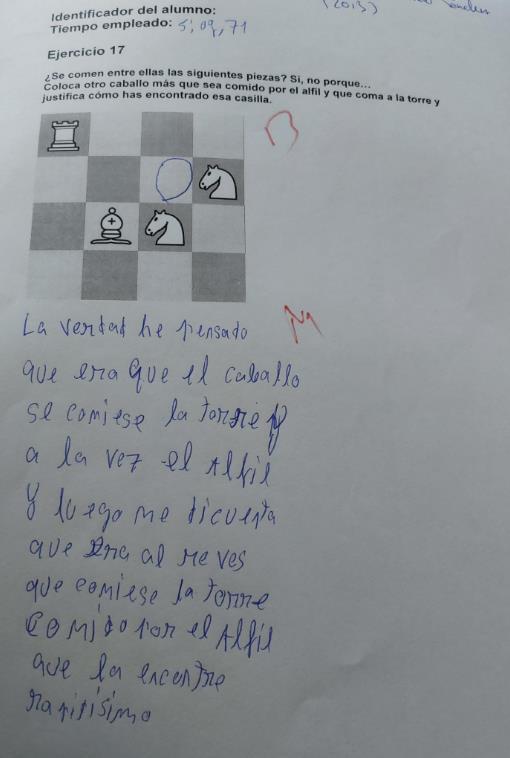 (2013)
Identificador del alumno:
Tiempo empleado: 5;09,71
Ejercicio 17
¿Se comen entre ellas las siguientes piezas? Si, no porque...
Coloca otro caballo más que sea comido por el alfil y que coma a la torre y
justifica cómo has encontrado esa casilla.
B
La verdad he pensado
que era que el caballo
se comiese la torre y
a la vez el Alfil
y luego me dicuenta
que era al reves
que comiese la torre
comido por el Alfil
que la encontre
rapidísimo